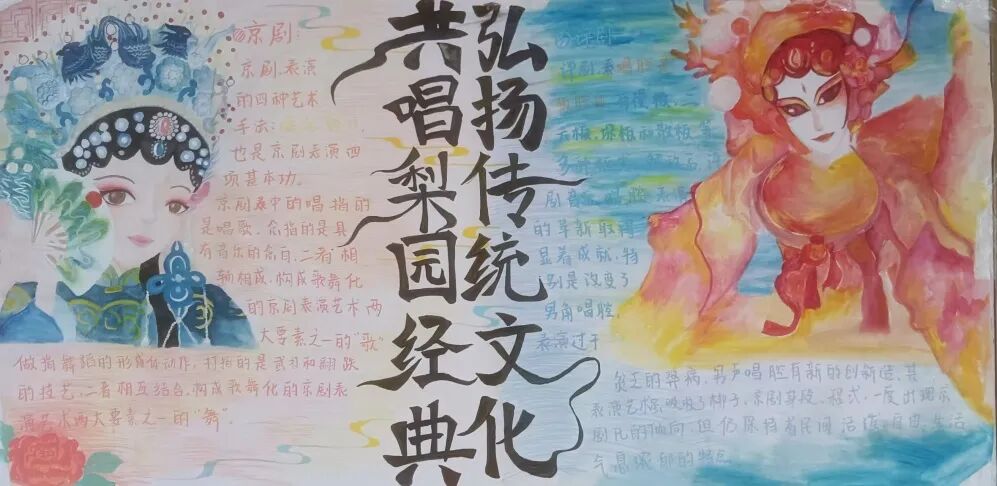 弘扬传统文化
共唱梨园经典
京剧:
京剧表演
的四种艺术
手法:
也是京剧表演四
项基本功。
京剧表中的唱指的
是唱歌,念指的是具
有音乐的念白,二者相
辅相成,构成歌舞化
的京剧表演艺术两
大要素之一的"歌"
做指舞蹈的形身体动作,打指的是武习和翻跌
的技艺,二者相互结合,构成歌舞化的京剧表
演艺术两大要素之一的"舞"。
评剧
评剧表唱腔
有慢板、二
板和散板等
剧音乐唱腔表演
的革新取得
显着成就,特
别是改变了
男角唱腔,
表演过于
贫乏的弊病,男声唱腔有新的创新造,其
表演艺术吸收了梆子、京剧身段、程式,一度出现京
剧化的倾向,但仍保持着民间活泼、自由、生活
气息浓郁的特点